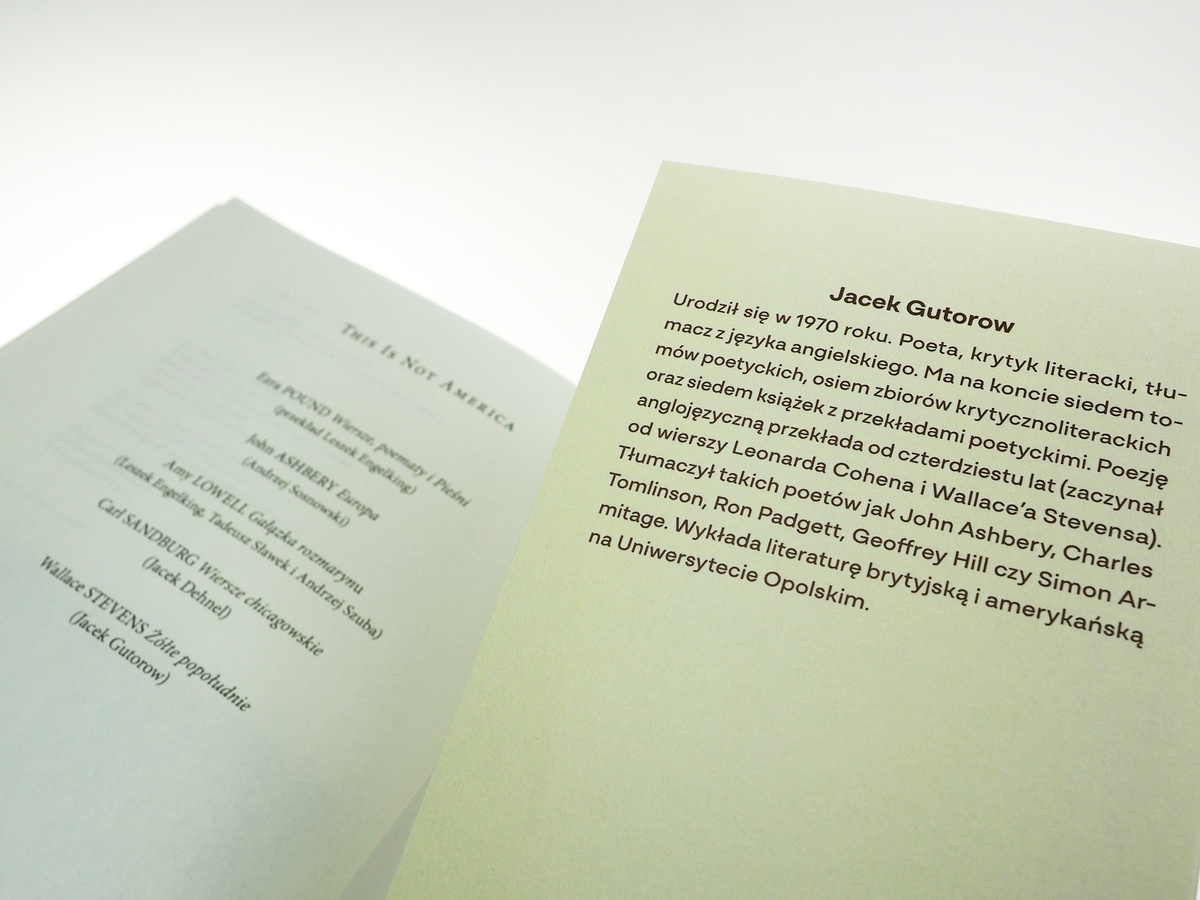 THIS IS NOT AMERICA
Ezra POUND Wiersze, poematy i Pieśni
(przekład Leszek Engelking)
John ASHBERY Europa
(Andrzej Sosnowski)
Amy LOWELL Gałązka rozmarynu
(Leszek Engelking, Tadeusz Sławek i Andrzej Szuba)
Carl SANDBURG Wiersze chicagowskie
(Jacek Dehnel)
Wallace STEVENS Żółte popołudnie
(Jacek Gutorow)
Jacek Gutorow
Urodził się w 1970 roku. Poeta, krytyk literacki, tłu-
macz z języka angielskiego. Ma na koncie siedem to-
mów poetyckich, osiem zbiorów krytycznoliterackich
oraz siedem książek z przekładami poetyckimi. Poezję
anglojęzyczną przekłada od czterdziestu lat (zaczynał
od wierszy Leonarda Cohena i Wallace’a Stevensa).
Tłumaczył takich poetów jak John Ashbery, Charles
Tomlinson, Ron Padgett, Geoffrey Hill czy Simon Ar-
mitage. Wykłada literaturę brytyjską i amerykańską
na Uniwersytecie Opolskim.